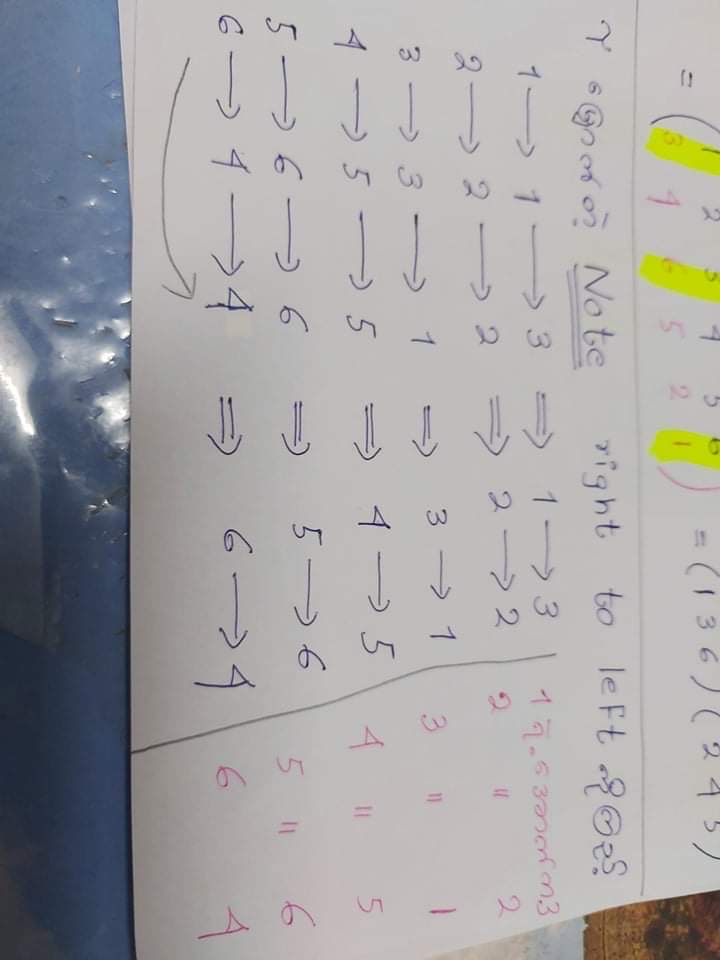 1 2 3 4 5 6
= ( 3 4 6 5 2 1 ) = (1 3 6) (2 4 5)
Note right to left
1 → 1 → 3 ⇒ 1 → 3 1 အောက်က 3
2 → 2 → 2 ⇒ 2 → 2 2 " 2
3 → 3 → 1 ⇒ 3 → 1 3 " 1
4 → 5 → 5 ⇒ 4 → 5 4 " 5
5 → 6 → 6 ⇒ 5 → 6 5 " 6
6 → 4 → 4 ⇒ 6 → 4 6 4